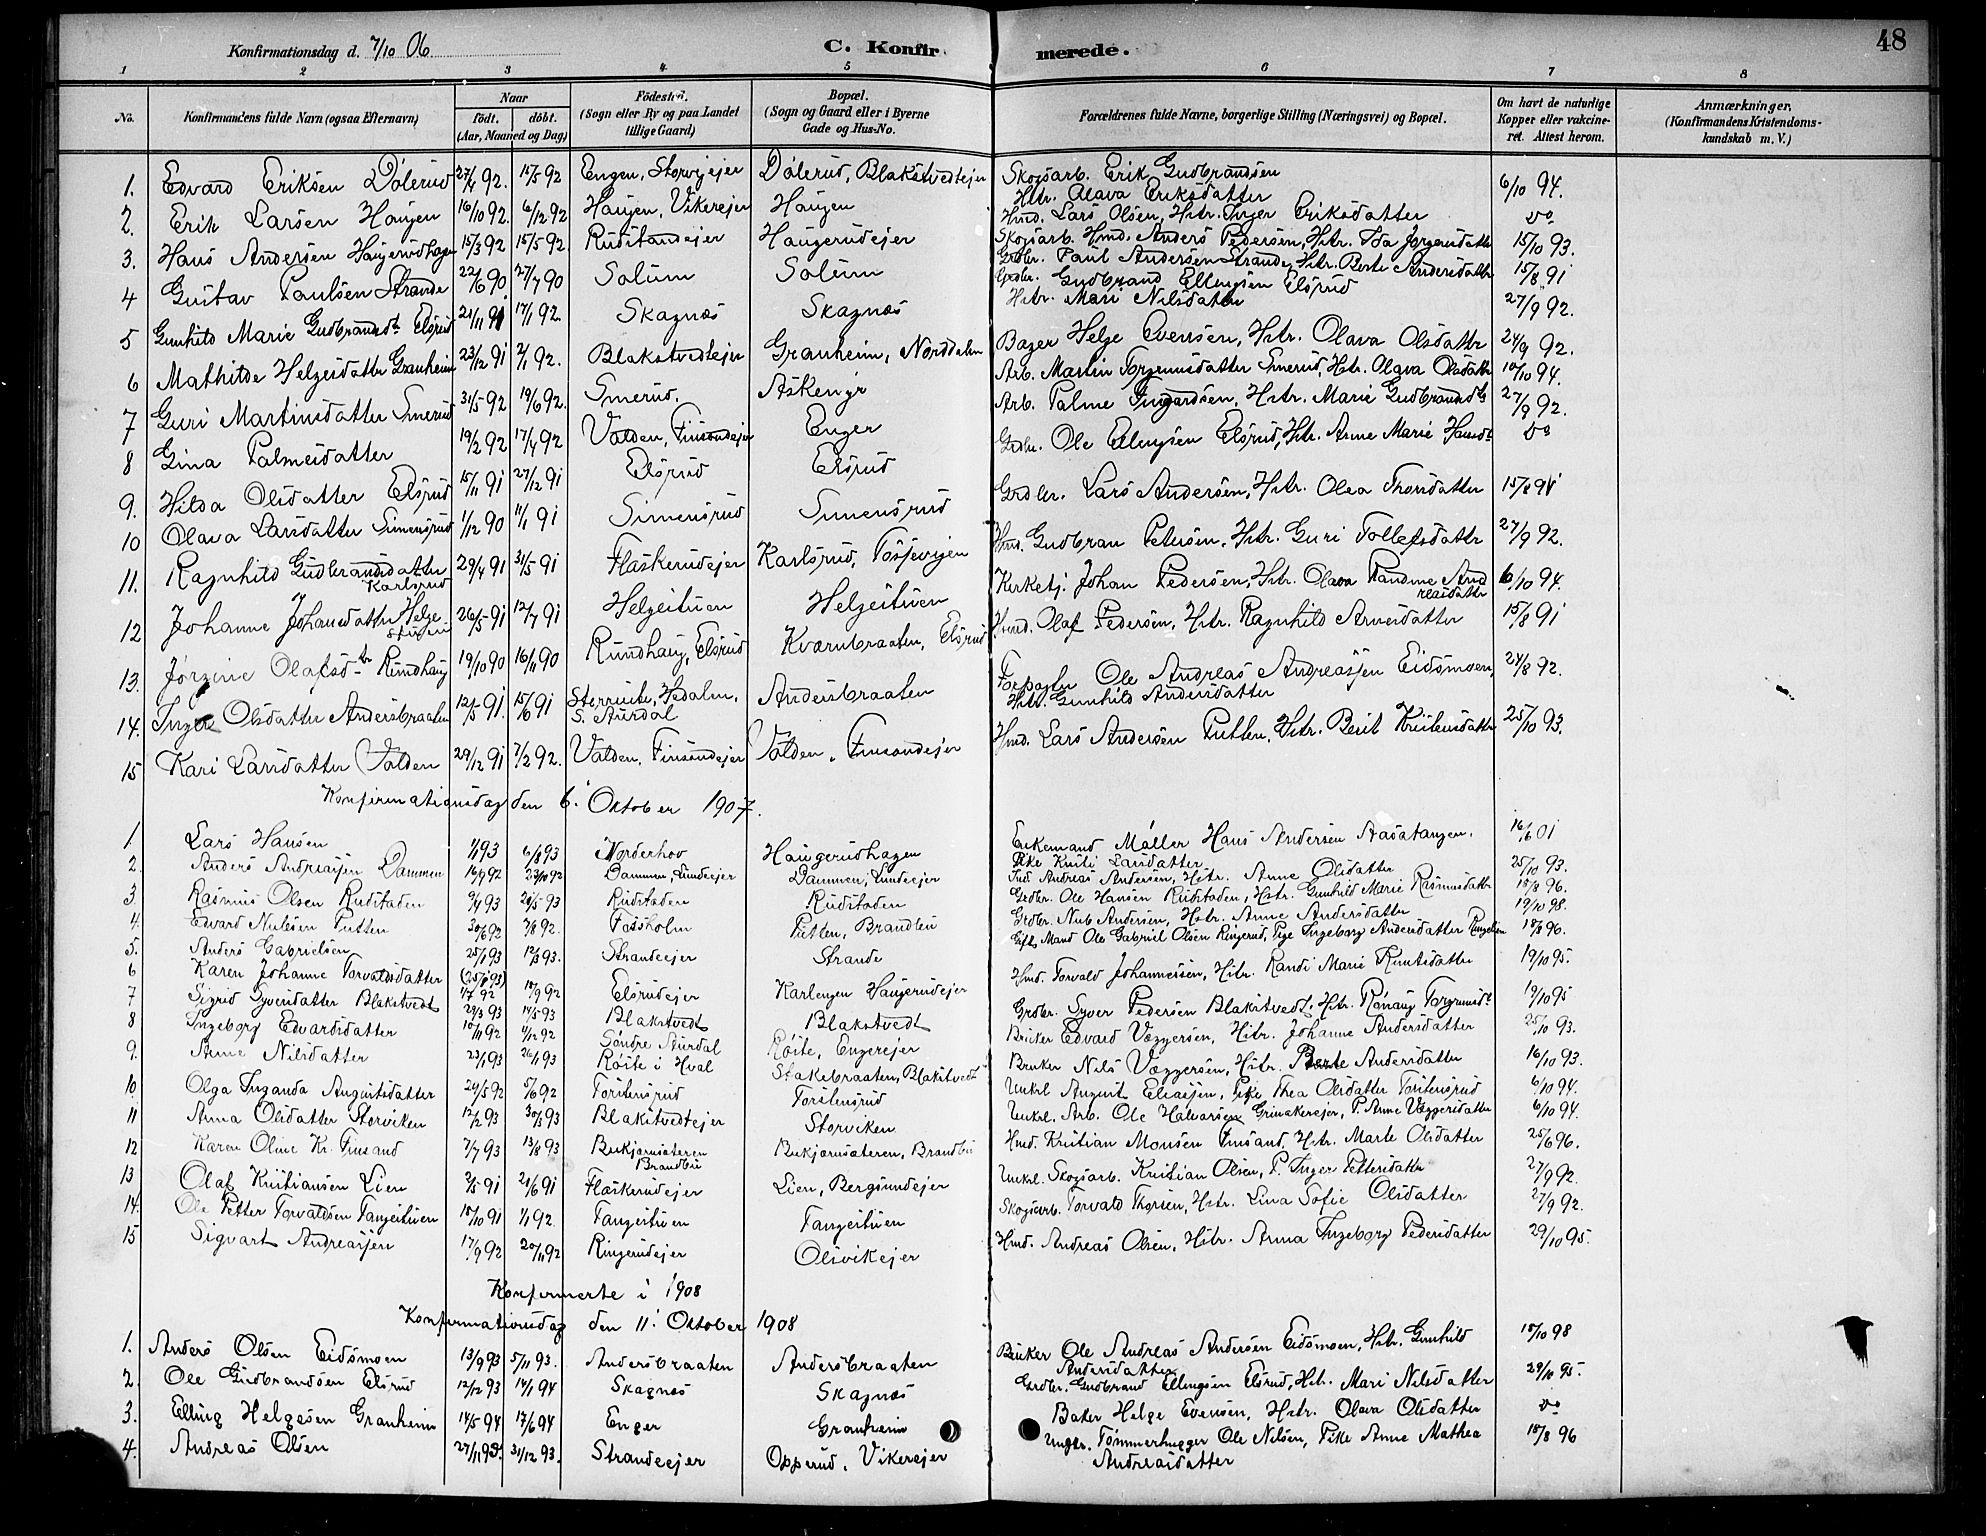 48
Konfirmationsdag d. 7/10 06.
C. Konfirmerede.
1 2 3 4 5 6 7 8
No. Konfirmandens fulde Navn (ogsaa Efternavn) Naar födt. döbt. (Aar, Maaned og Dag) Födested. (Sogn eller By og paa Landet tillige Gaard) Bopæl. (Sogn og Gaard eller i Byerne Gade og Hus-No. Forældrenes fulde Navne, borgerlige Stilling (Næringsvei) og Bopæl. Om havt de naturlige Kopper eller vakcineret. Attest herom. Anmærkninger, (Konfirmandens Kristendomskundskab m. V.)
1. Edvard Eriksen Dölerud 27/4 92. 15/5 92 Engen, Storviejer Dölerud, Blakstvedtejer Skogsarb. Erik Gudbrandsen Hstr. Olava Eriksdatter 6/10 94.
2. Erik Larsen Haugen 16/10 92. 6/12 92 Haugen, Vikerejer Haugen Hmd. Lars Olsen, Hstr. Inger Eriksdatter do
3. Hans Andersen Haugerudhagen 15/3 92 15/5 92. Rudstandejer Haugerudejer Skogsarb. Hmd. Anders Pedersen, Hstr. Ida Jörgensdattr 15/10 93.
4 Gustav Paulsen Strande 22/6 90 27/7 90 Solum Solum Grdbr. Paul Andersen Strande, Hstr. Berte Andersdattr 15/8 91
5 Gunhild Marie Gudbrandsdt. Elsrud 21/11 91 17/1 92. Skagnæs Skagnæs Grdbr. Gudbrand Ellingsen Elsrud Hstr. Mari Nilsdatter 27/9 92.
6 Mathilde Helgesdatter Granheim 23/12 91 2/1 92. Blakstvedtejer Granheim, Norddalen Bager Helge Evensen, Hstr. Olava Olsdattr 24/9 92.
7 Guri Martinsdatter Smerud 31/5 92 19/6 92. Smerud. Askengr Arb. Martin Torgeunsdatter Smerud, Hstr. Olava Olsdattr 10/10 94.
8 Gina Palmesdatter 19/2 92 17/4 92 Valden, Finsandejer Enger Arb. Palme Ingvardsen, Hstr. Marie Gudbrandsdt 27/9 92.
9. Hilda Olsdatter Elsrud 15/11 91 27/12 91 Elsrud Elsrud Grdbr. Ole Ellingsen Elsrud, Hstr. Anne Marie Hansdt do
10 Olava Larsdatter Simensrud 1/12 90 11/1 91 Simensrud Simensrud Grdbr. Lars Andersen, Hstr. Olea Thorsdatter 15/8 91
11. Ragnhild Gudbrandsdatter Karlsrud 29/4 91 31/5 91 Flaskerudejer Karlsrud, Tosseviken Hmd. Gudbran Petersen, Hstr. Guri Tollefsdatter 27/9 92.
12 Johanne Johansdatter Helgestuen 26/5 91 12/7 91 Helgestuen Helgestuen Kirketj. Johan Pedersen, Hstr. Olava Randine Andreasdatter 6/10 94.
13. Jörgine Olafsdtr Rundhaug 19/10 90 16/11 90 Rundhaug, Elsrud Kvarnbraaten, Elsrud Hmd. Olaf Pedersen, Hstr. Ragnhild Arnesdatter 15/8 91
14. Inger Olsdatter Andersbraaten 12/5 91. 15/6 91 Sterruste, Hedalen, S. Aurdal Andersbraaten Forpagter Ole Andreas Andreassen Eidsmoen, Hstr. Gunhild Andersdatter 24/8 92.
15 Kari Larsdatter Valden 29/12 91 7/2 92. Valden, Finsandejer Valden, Finsandejer Hmd. Lars Andersen Putten, Hstr. Berit Kristensdatter 25/10 93.
Konfirmationsdag den 6. Oktober 1907.
1. Lars Hansen 1/1 93 6/8 93 Norderhov Haugerudhagen Enkemand Möller Hans Andersen Aasatangen. Pike Kristi Larsdatter 16/6 01
2. Anders Andreassen Dammen 16/9 92 23/10 92 Dammen, Lundeejer Dammen, Lundeejer Ind Andreas Andersen, Hstr. Anne Olsdatter 25/10 93.
3. Rasmus Olsen Rudstaden 9/4 93 21/5 93 Rudstaden Rudstaden Grdbr. Ole Hansen Rudstaden, Hstr. Gunhild Marie Rasmusdattr 15/8 96.
4. Edvard Nulsen Putten 30/6 92 7/8 92. Fossholm Putten, Brandbu Grdbr. Nub Andersen, Hstr. Anne Andersdatter 19/10 98.
5. Anders Gabrielsen 25/1 93 12/3 93. Strandeejer Strande Gift Mand Ole Gabriel Olsen Ringerud, Pige Ingeborg Andersdatter 18/8 96.
6 Karen Johanne Torvaldsdatter (25/1 93) 1/7 92 18/9 92 Elsrudejer Karlengen Haugerudejer Hmd. Torvald Johannessen, Hstr. Randi Marie Knutsdatter 19/10 95.
7 Sigrid Syversdatter Blakstvedt 29/3 93 14/5 93 Blakstvedt Blakstvedt Grdbr. Syver Pedersen Blakstvedt, Hstr. Rönaug Torgrimsdt 19/10 95
8 Ingeborg Edvardsdatter 10/11 92 4/12 92 Söndre Aurdal Röste, Engerejer Bruker Edvard Væggersen, Hstr. Johanne Andersdatter 25/10 93.
9. Anne Nilsdatter 23/1 93 26/1 93 Röste i Hval Stakebraaten, Blakstvedt Bruker Nils Væggersen, Hstr. Berte Andersdatter 16/10 93.
10 Olga Inganda Augustsdatter 24/5 92 5/6 92 Torstensrud Torstensrud Unkrl. August Eliassen, Pike Thea Olsdatter Torstensrud 6/10 94.
11 Anna Olsdatter Storviken 12/2 93 30/3 93 Blakstvedtejer Storviken Unkrl. Arb. Ole Halvorsen Grimakerejer, P. Anne Væggersdatter 6/10 94.
12 Karen Oline Kr. Finsand 7/7 93 13/8 93 Bukjærnsæteren Brandbu Bukjærnsæteren, Brandbu Hmd. Kristian Monsen Finsand, Hstr. Marte Olsdatter 25/6 96.
13 Olaf Kristiansen Lien 3/5 91 21/6 91 Flaskerudejer Lien, Bergsundejer Unkrl. Skogsarb. Kristian Olsen, P. Inger Pettersdattr 27/9 92.
14. Ole Petter Torvaldsen Tangestuen 18/10 91 1/1 92. Tangestuen Tangestuen Skogsarb. Torvald Thorsen, Hstr. Lina Sofie Olsdatter 27/9 92.
15 Sigvart Andreassen 17/9 92 20/11 92 Ringerudejer Olsvikejer Hmd. Andreas Olsen, Hstr. Anna Ingeborg Pedersdatter 29/10 95.
Konfirmerte i 1908
Konfirmationsdag den 11. Oktober 1908
1. Anders Olsen Eidsmoen 13/9 93 5/11 93. Andersbraaten Andersbraaten Bruker Ole Andreas Andersen Eidsmoen, Hstr. Gunhild Andersdatter 18/10 98
2. Ole Gudbrandsen Elsrud 12/12 93 14/1 94 Skagnæs Skagnæs Grdbr. Gudbrand Ellingsen Elsrud, Hstr. Mari Nilsdatter 29/10 95.
3. Elling Helgesen Granheim 14/5 94 17/6 94 Enger Granheim Baker Helge Evensen, Hstr. Olava Olsdatter do
4. Andreas Olsen 27/11 93. 31/12 93. Strandeejer Opperud, Vikerejer Ungkr. Tømmerhugger Ole Nilsen, Pike Anne Mathea Andreasdatter 18/8 96